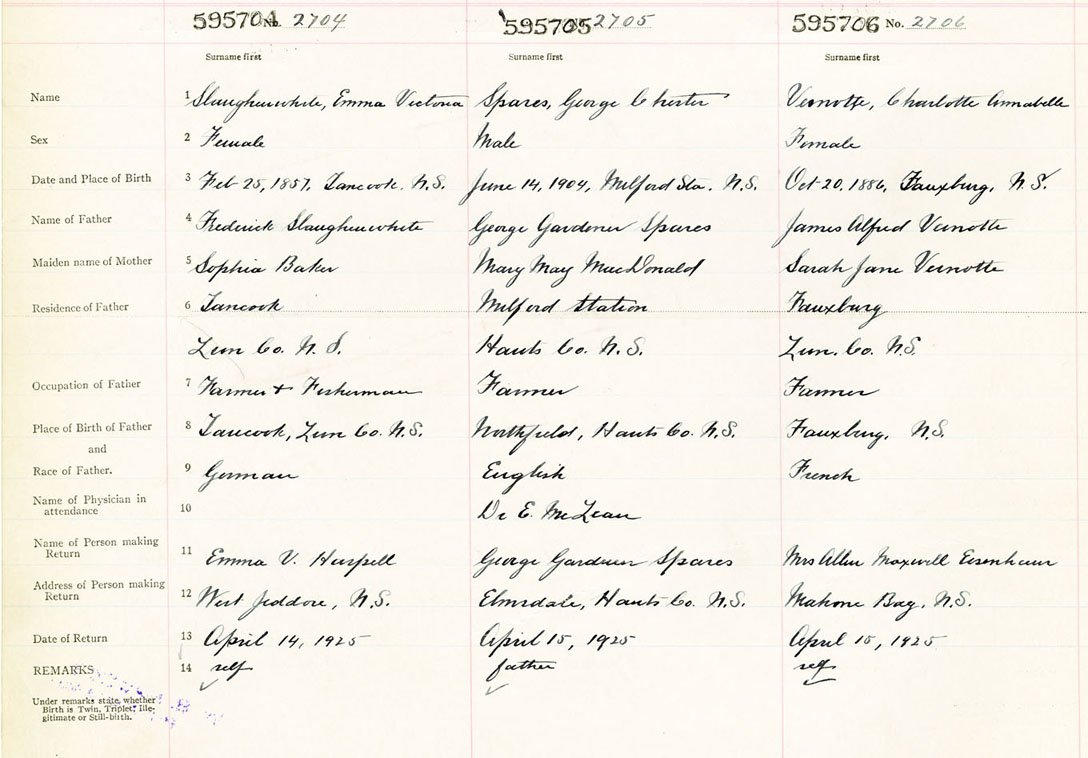 595704 No. 2704 595705 No. 2705 595706 No. 2706
Surname first Surname first Surname first
Name 1 Slaughenwhite, Emma Victoria Spares, George Chester Vernotte, Charlotte Annabelle
Sex 2 Female Male Female
Date and Place of Birth 3 Feb 25, 1857, Tancook. N.S. June 14, 1904, Milford Sta. N.S. Oct 20, 1886, Fauxburg, N.S.
Name of Father 4 Frederick Slaughenwhite George Gardener Spares James Alfred Vernotte
Maiden name of Mother 5 Sophia Baker Mary May MacDonald Sarah Jane Vernotte
Residence of Father 6 Tancook Milford Station Fauxburg
Lun Co. N.S. Hants Co. N.S. Lun. Co. N.S.
Occupation of Father 7 Farmer + Fisherman Farmer Farmer
Place of Birth of Father 8 Tancook, Lun Co. N.S. Northfield, Hants Co. N.S. Fauxburg, N.S.
and
Race of Father. 9 German English French
Name of Physician in
attendance 10 Dr E. McLean
Name of Person making
Return 11 Emma V. Harpell George Gardener Spares Mrs Allen Maxwell Eisenhaur
Address of Person making
Return 12 West Jeddore, N.S. Elmsdale, Hants Co. N.S. Mahone Bay, N.S.
Date of Return 13 April 14, 1925 April 15, 1925 April 15, 1925
REMARKS 14 self father self
Under remarks state, whether
Birth is Twin, Triplet, Ille-
gitimate or Still-birth.